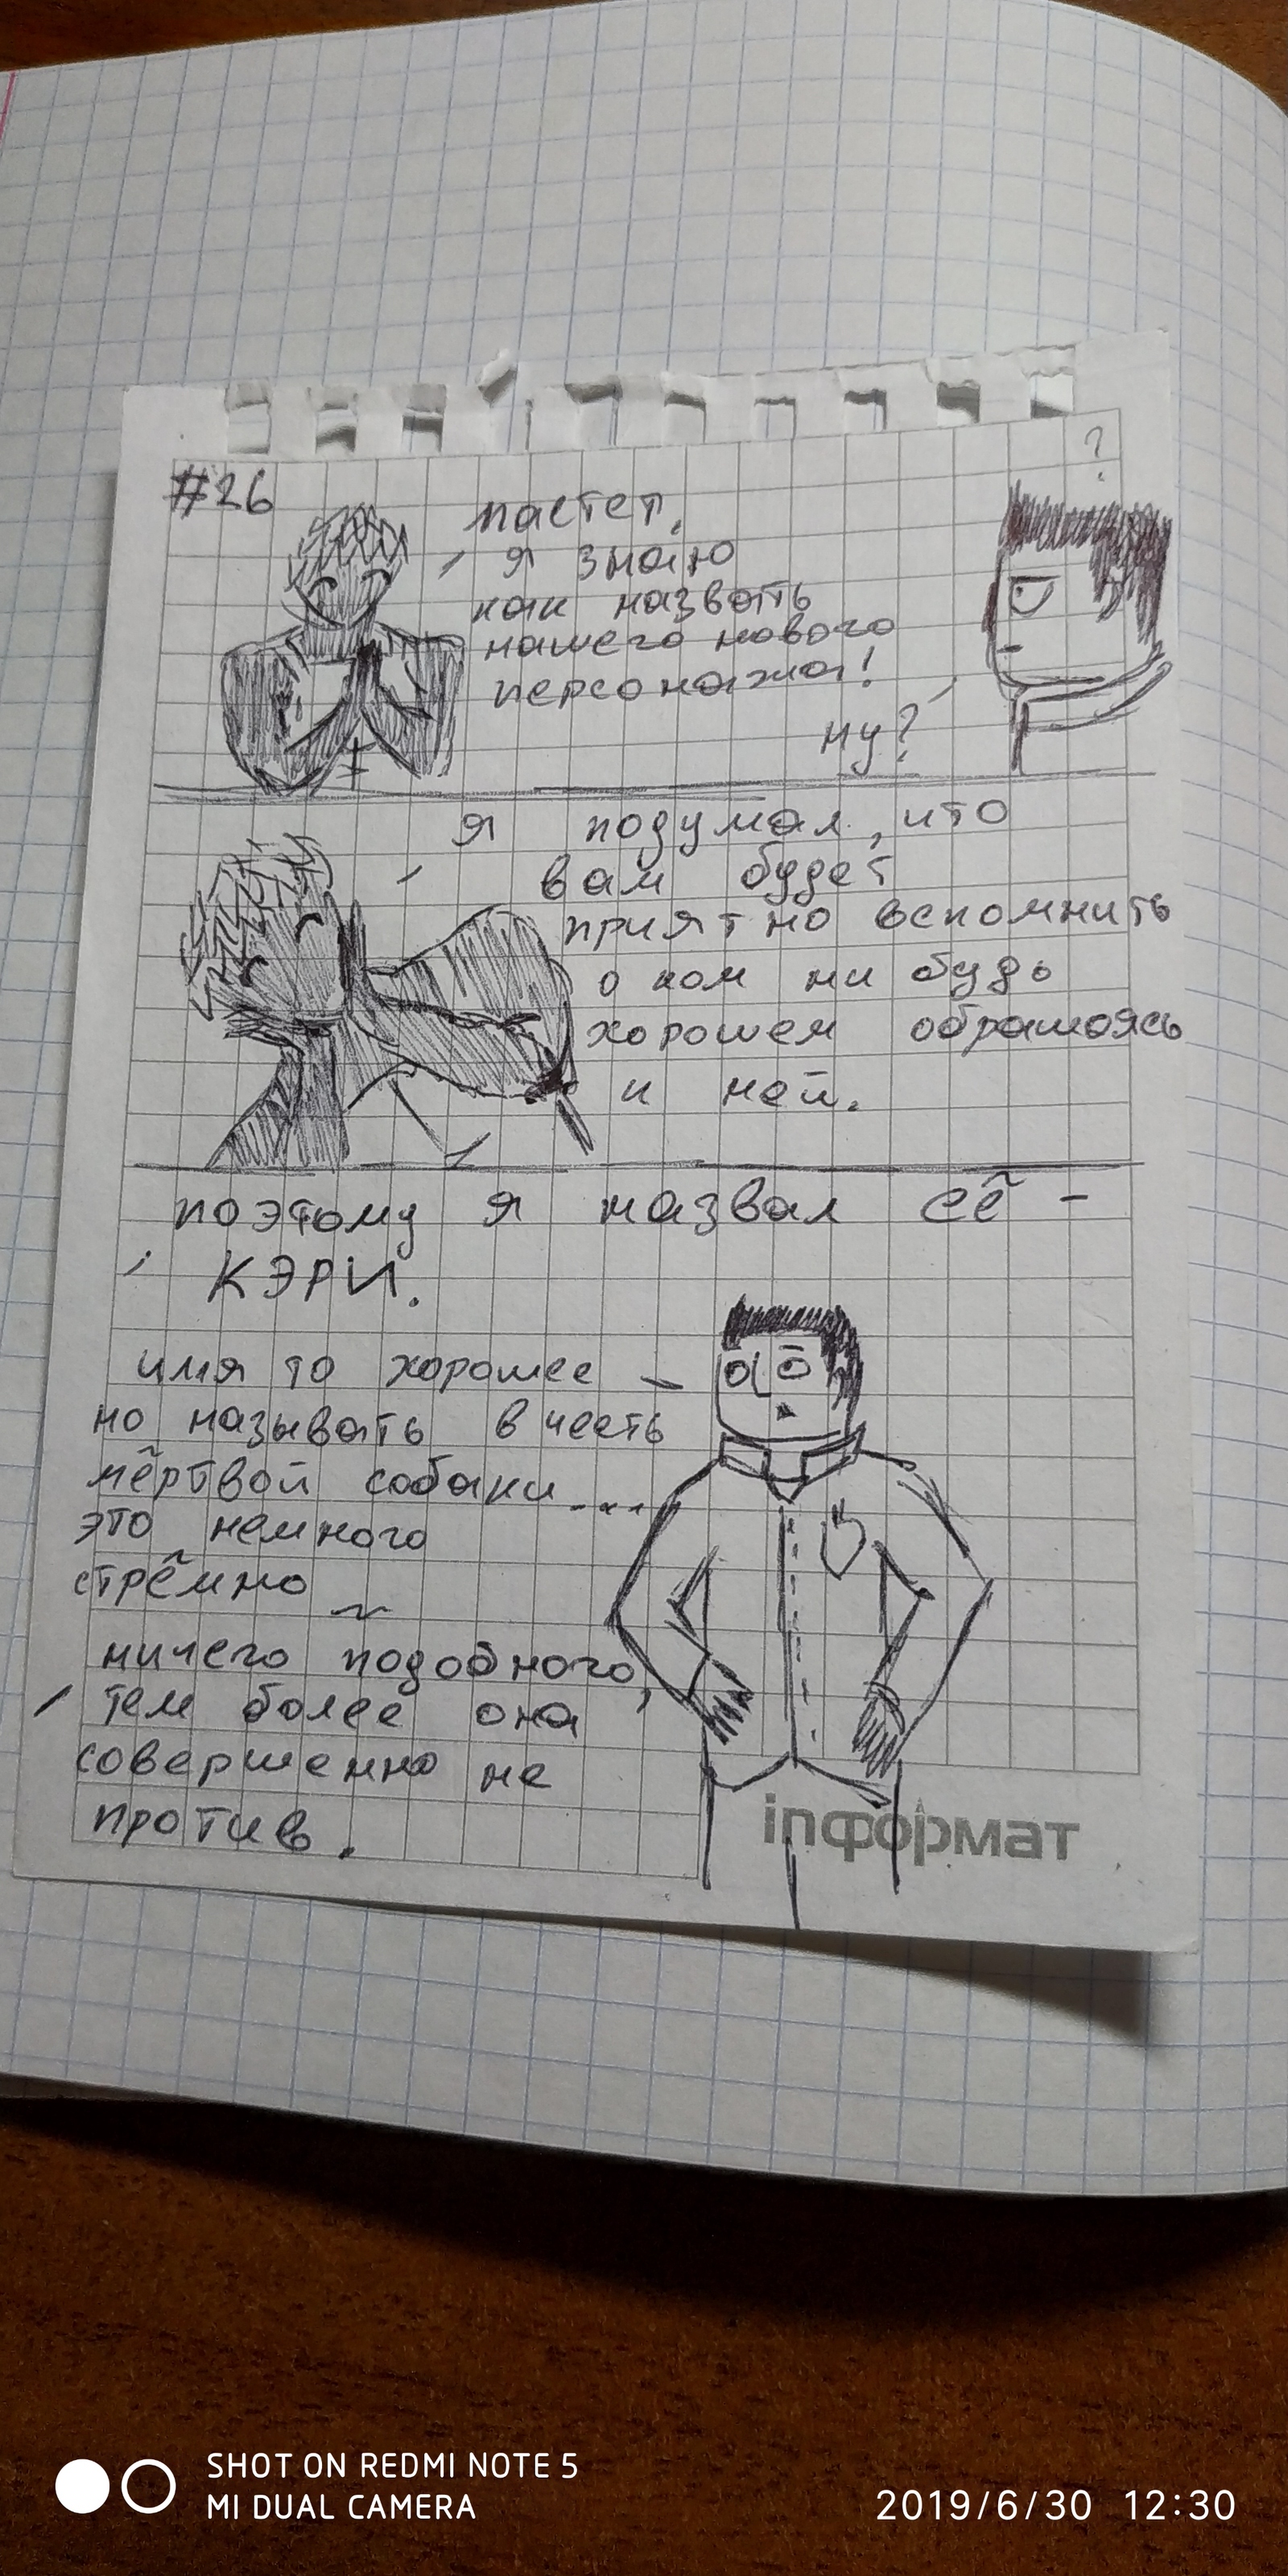 #26
пастет,
я знаю
как назвать
нашего нового
персонажа!
?
ну?
я подумал, что
вам будет
приятно вспомнить
о ком ни будь
хорошем обращаясь
к ней.
поэтому я назвал её -
КЭРИ.
имя то хорошее
но называть в честь
мёртвой собаки...
это немного
стрёмно
ничего подобного,
тем более она
совершенно не
против.
inформат
SHOT ON REDMI NOTE 5
MI DUAL CAMERA
2019/6/30 12:30